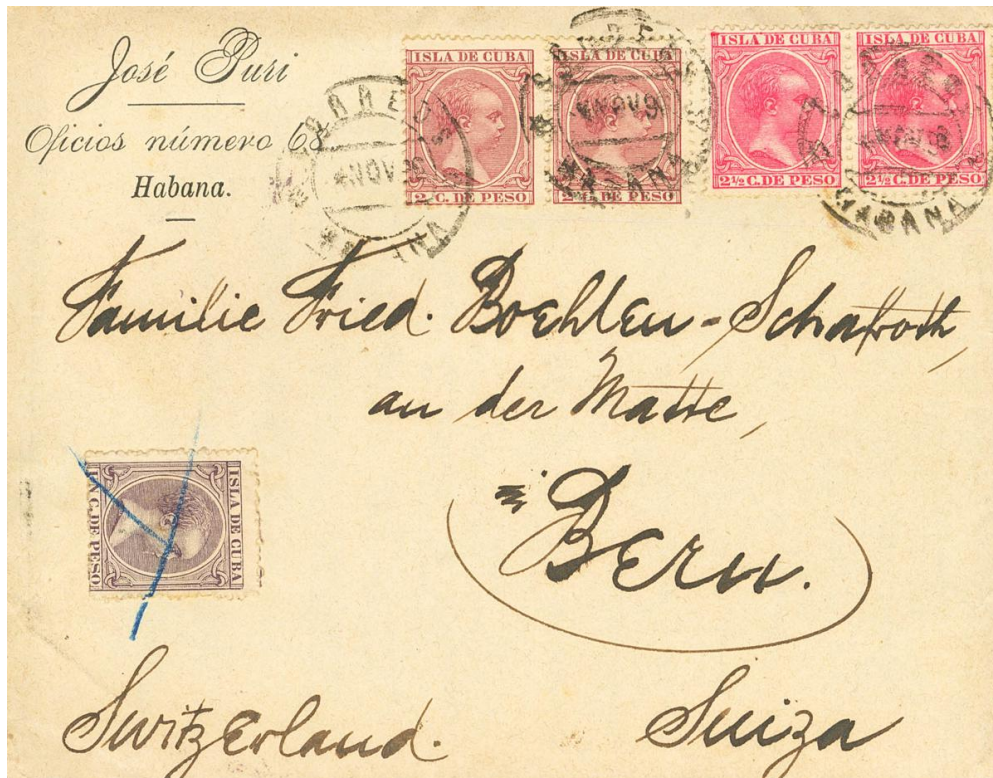 José Puri
Oficios número 68
Habana.
ISLA DE CUBA
2 C. DE PESO
ISLA DE CUBA
2 C. DE PESO
ISLA DE CUBA
2½ C. DE PESO
ISLA DE CUBA
2½ C. DE PESO
CORREOS
NOV
HABANA
Familie Fried. Boehlen-Schafroth,
an der Matte,
Bern.
ISLA DE CUBA
UN C. DE PESO
Switzerland.
Suiza